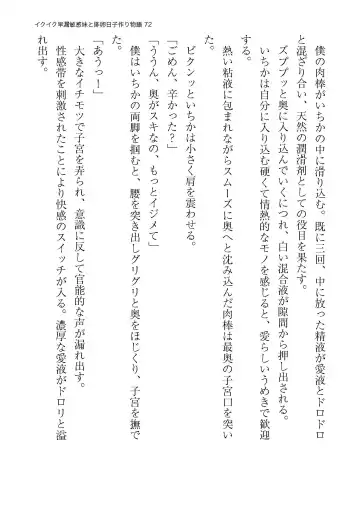 イクイク早漏敏感妹と排卵日子作り物語 72
僕の肉棒がいちかの中に滑り込む。既に三回、中に放った精液が愛液とドロドロ
と混ざり合い、天然の潤滑剤としての役目を果たす。
ズププッと奥に入り込んでいくにつれ、白い混合液が隙間から押し出される。
いちかは自分に入り込む硬くて情熱的なモノを感じると、愛らしいうめきで歓迎
する。
熱い粘液に包まれながらスムーズに奥へと沈み込んだ肉棒は最奥の子宮口を突い
た。
ビクンッといちかは小さく肩を震わせる。
「ごめん、辛かった?」
「ううん、奥がスキなの、もっとイジメて」
僕はいちかの両脚を掴むと、腰を突き出しグリグリと奥をほじくり、子宮を撫で
る。
「あうっー」
大きなイチモツで子宮を弄られ、意識に反して官能的な声が漏れ出す。
性感帯を刺激されたことにより快感のスイッチが入る。濃厚な愛液がドロリと溢
れ出す。